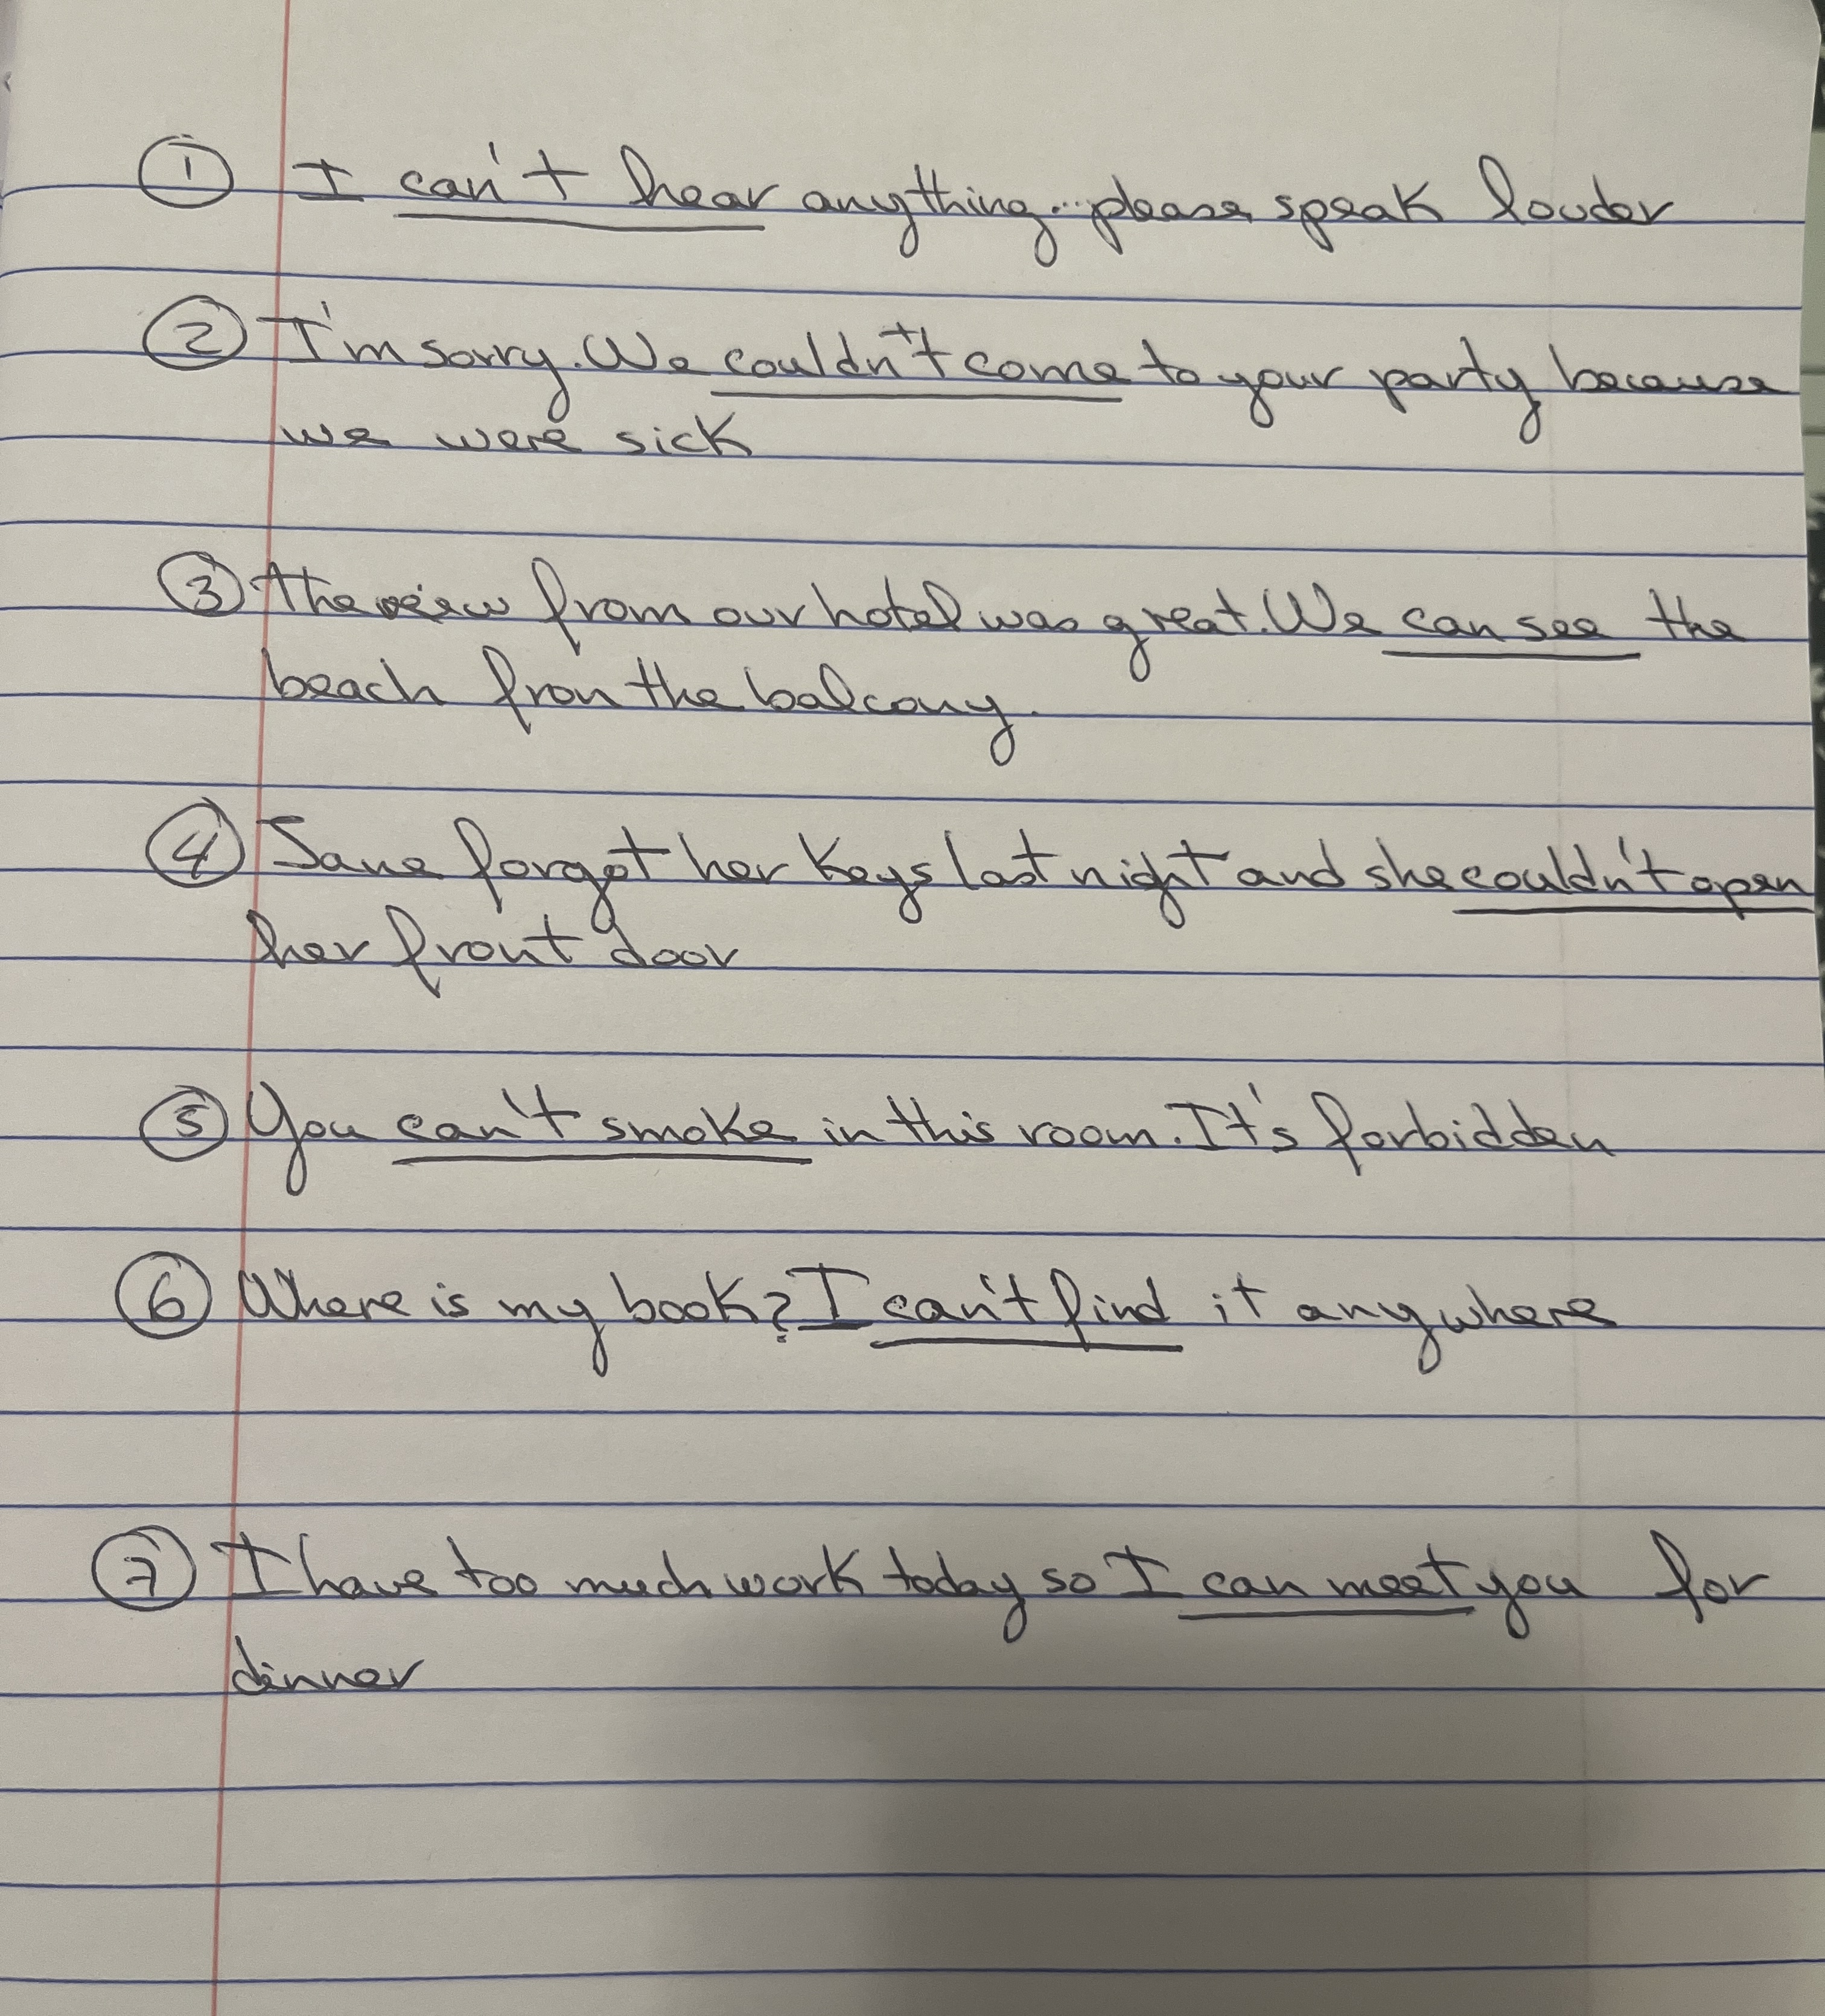 ① I can't hear anything... please speak louder
② I'm sorry. We couldn't come to your party because
we were sick
③ the view from our hotel was great. We can see the
beach fron the balcony.
④ Jane forgot her keys last night and she couldn't open
her front door
⑤ You can't smoke in this room. It's forbidden
⑥ Where is my book? I can't find it anywhere
⑦ I have too much work today so I can meet you for
dinner